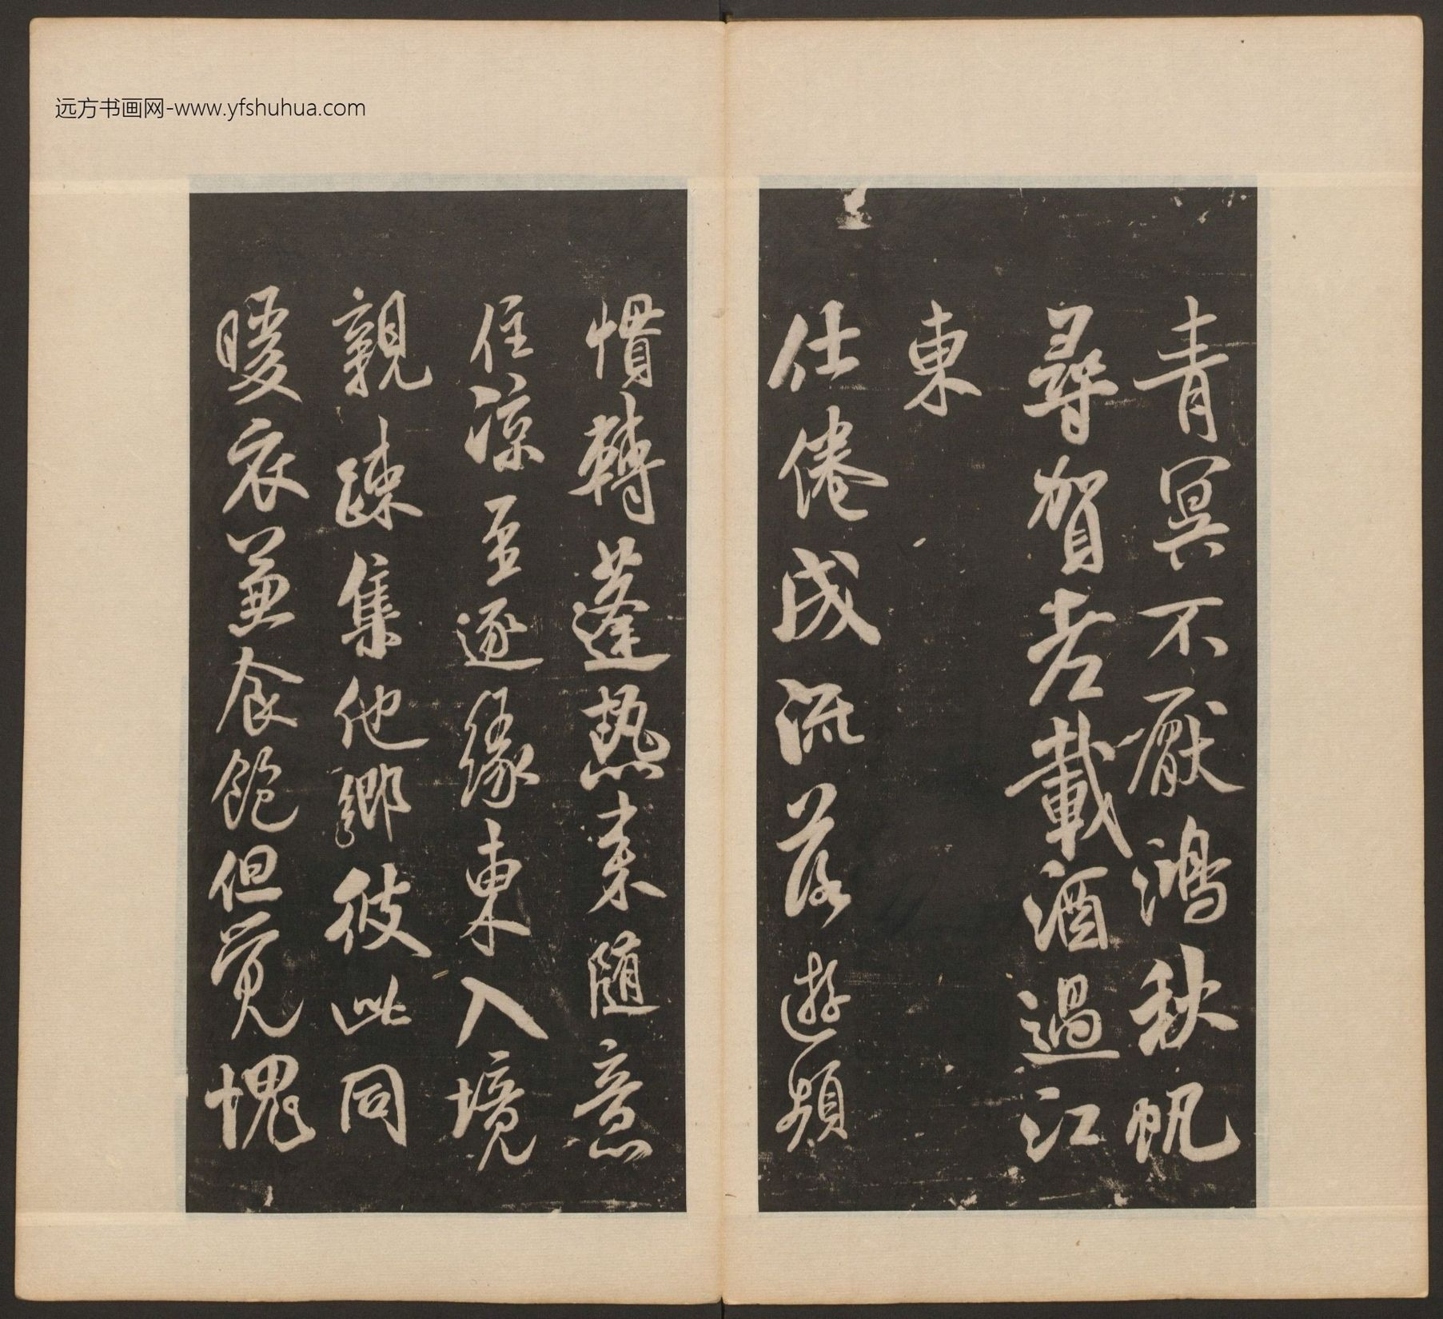 远方书画网-www.yfshuhua.com
青冥不厭鴻秋帆
尋賀老載酒過江
東
仕倦成流落遊頻
慣轉蓬热来随意
住涼至逐緣東入境
親疎集他鄉彼此同
暖衣兼食飽但覓愧